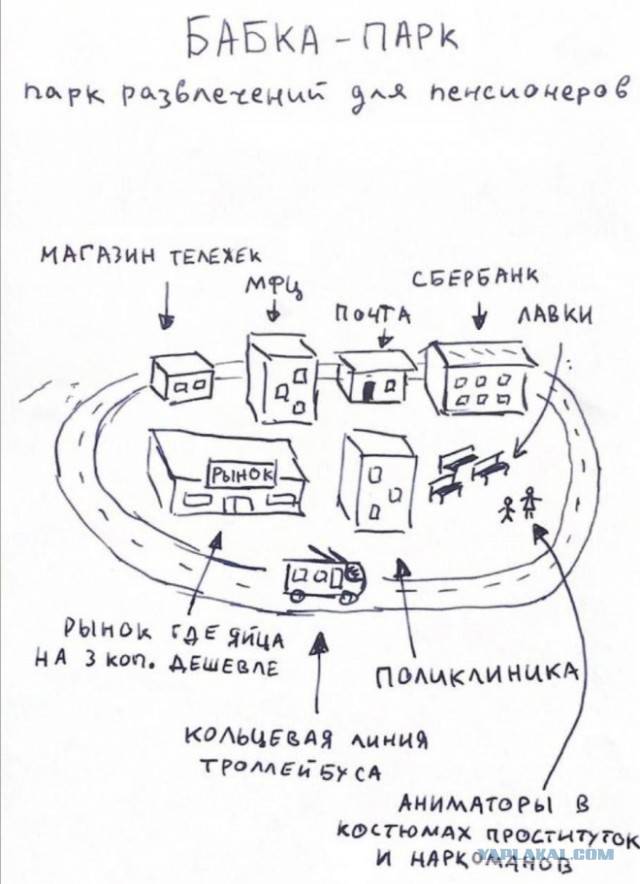 БАБКА-ПАРК
парк развлечений для пенсионеров
МАГАЗИН ТЕЛЕЖЕК
МФЦ
ПОЧТА
СБЕРБАНК
ЛАВКИ
РЫНОК
РЫНОК ГДЕ ЯЙЦА
НА 3 КОП. ДЕШЕВЛЕ
ПОЛИКЛИНИКА
КОЛЬЦЕВАЯ ЛИНИЯ
ТРОЛЛЕЙБУСА
АНИМАТОРЫ В
КОСТЮМАХ ПРОСТИТУТОК
И НАРКОМАНОВ
YAPLAKAL.COM